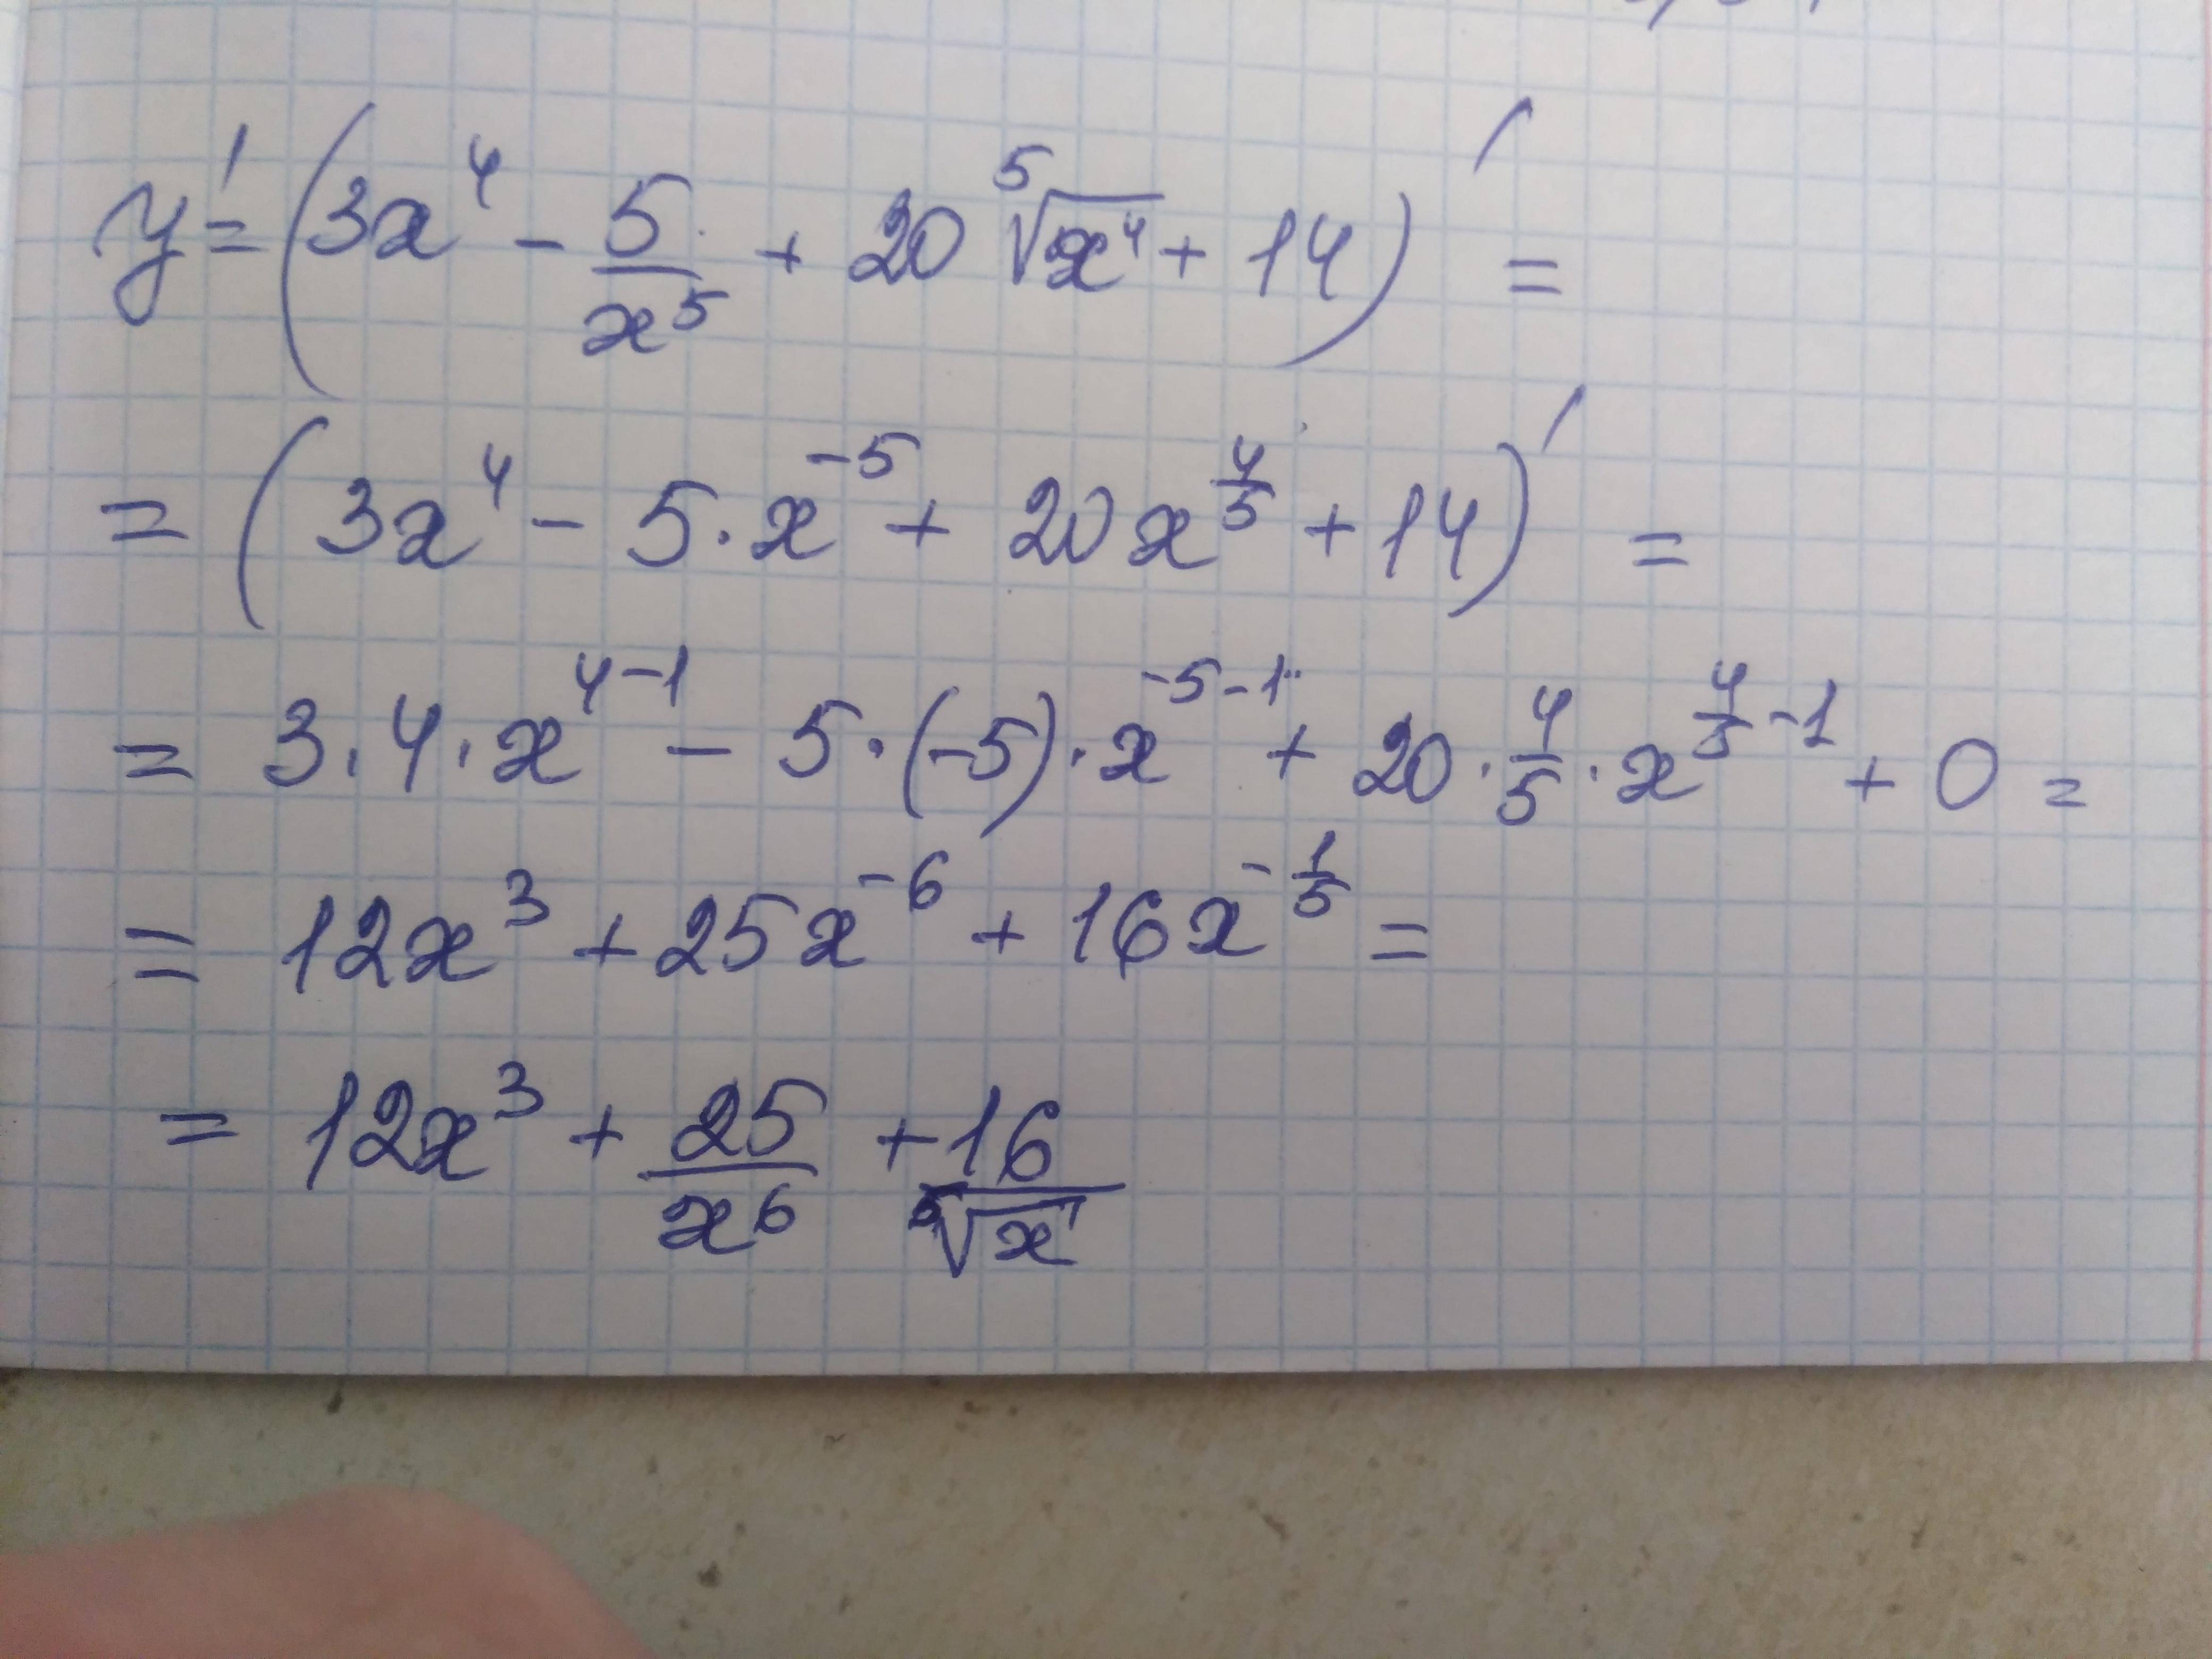 y' = (3x⁴ - 5/x⁵ + 20 ⁵√(x⁴) + 14)' =
= (3x⁴ - 5·x⁻⁵ + 20x^(4/5) + 14)' =
= 3·4·x^(4-1) - 5·(-5)·x^(-5-1) + 20·4/5·x^(4/5-1) + 0 =
= 12x³ + 25x⁻⁶ + 16x^(-1/5) =
= 12x³ + 25/x⁶ + 16/⁵√x